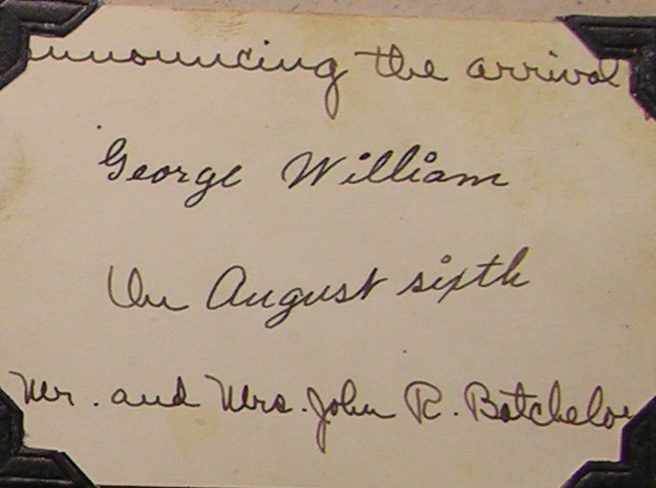 Announcing the arrival
George William
On August sixth
Mr. and Mrs. John R. Batchelor